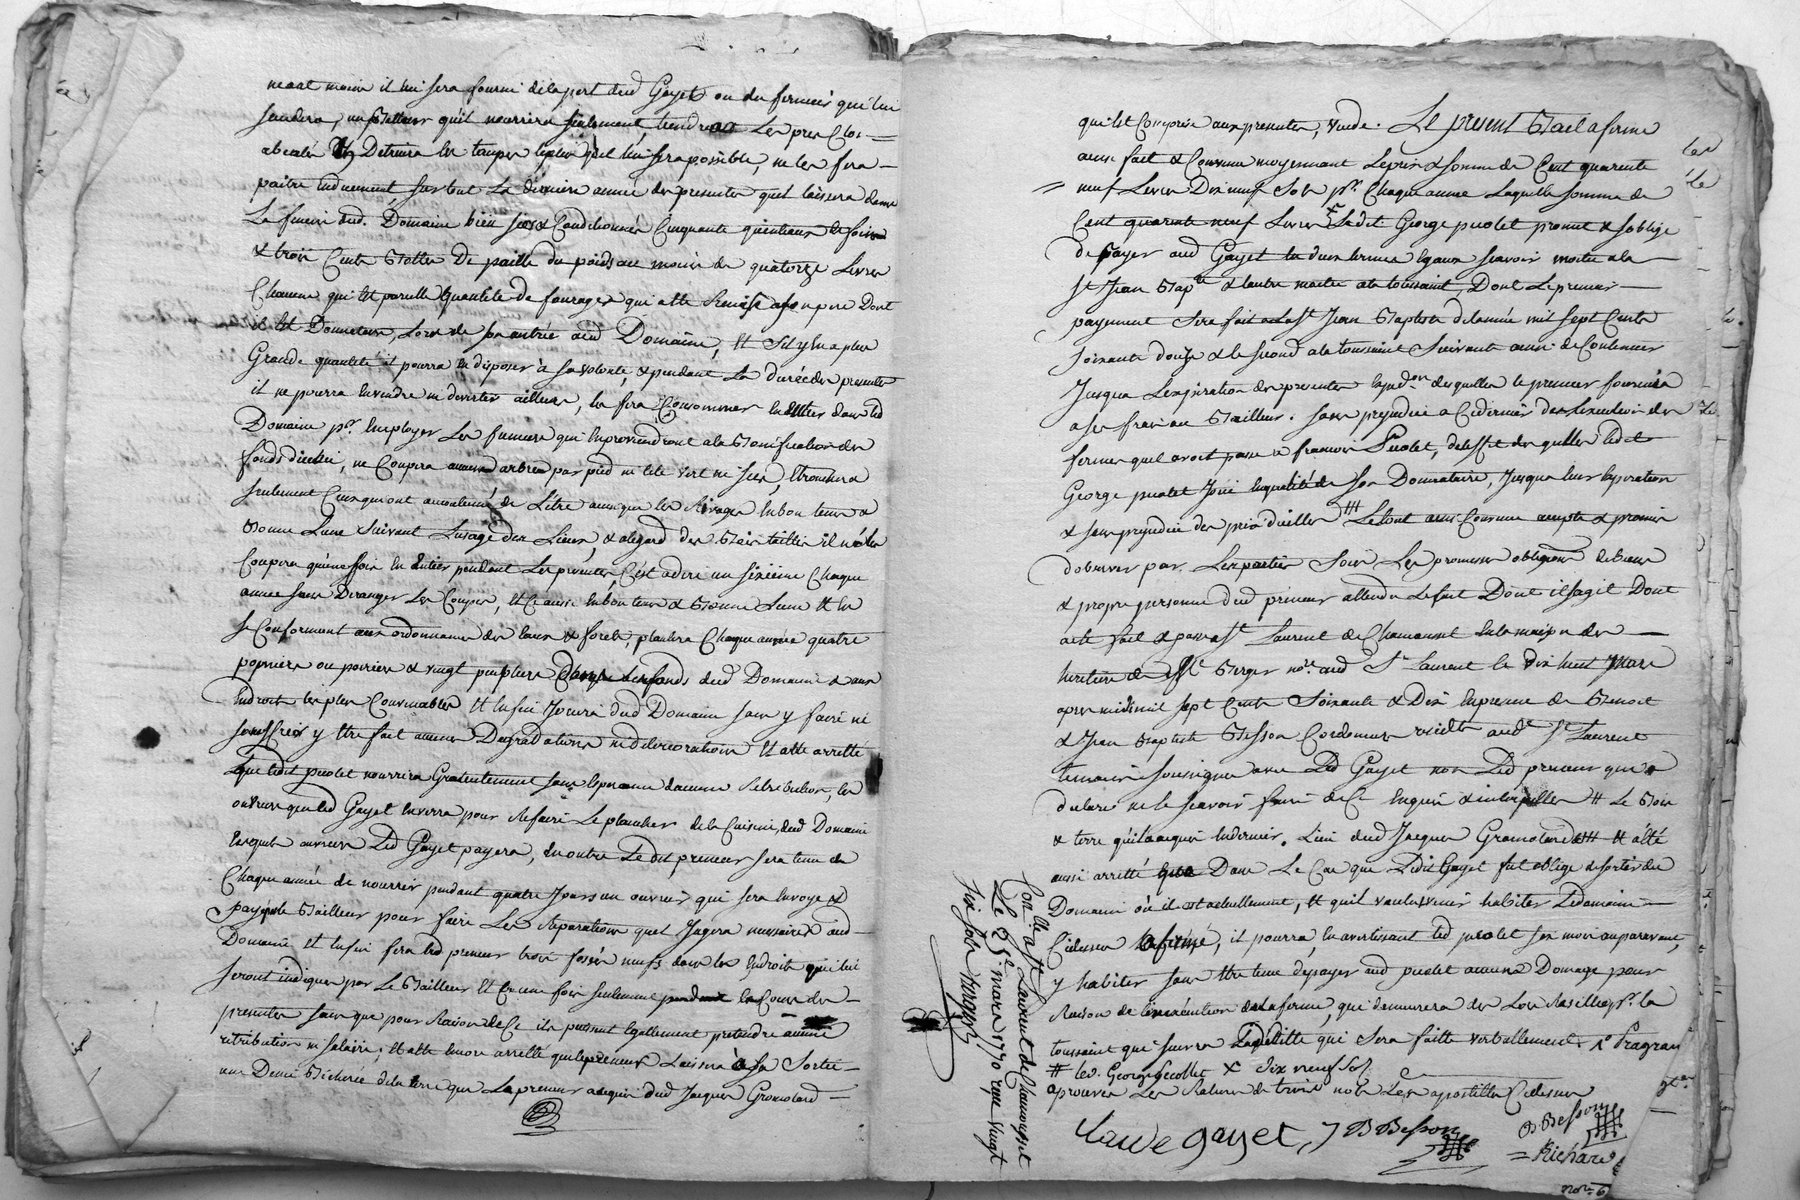 neant moins il lui sera fourni de la part dud Gayet ou du fermier qui lui
il nourrira seulement tiendra les prés clos
ne les fera
paitre induement surtout la derniere année des presentes qu'il laissera dans
la feniere dud. Domaine bien secs & conditionnés Cinquante quintaux de foin
& trois Cents Bottes De paille du poids au moins de quatorze Livres
Chacune qui est pareille quantité de fourages qui a été Remise a son pere Dont
il est Donnataire, Lors de son entrée aud Domaine, et s'il y en a plus
Grande quantité il pourra en disposer à sa volonté, & pendant la durée des presentes
il ne pourra en vendre ni divertir ailleurs, les fera Consommer en entier dans led
Domaine pr. Employer les fumiers qui en proviendront a la Bonification des
fonds d'icelui, ne Coupera aucuns arbres par pied ni tete vert ni sec, Ebranchera
seulement Ceux qui ont accoutumé de L'être ainsi que les Rivages en bon tems &
Bonne Lune suivant L'usage des Lieux, & a l'egard des Bois taillis il ne les
Coupera qu'une fois en entier pendant les presentes, C'est a dire un sixieme Chaque
année sans Deranger les Coupes, et Ce aussi en bon tems & Bonne Lune et en
se Conformant aux ordonnances des Eaux & forets, plantera Chaque année quatre
pomiers ou poiriers & vingt peupliers dans les fonds dud Domaine & aux
Endroits les plus Convenables et enfin Jouira dud Domaine sans y faire ni
souffrir y être fait aucunes Degradations ni deteriorations Et a été arretté
que ledit peolet nourrira Gratuitement sans Esperance d'aucune Retribution, les
ouvriers que led Gayet enverra pour Refaire Le plancher de la Cuisine dud Domaine
lesquels ouvriers Led Gayet payera, En outre Ledit preneur sera tenu de
Chaque année de nourrir pendant quatre Jours un ouvrier qui sera Envoyé &
payé par le Bailleur pour faire Les Reparations qu'il Jugera necessaires aud
Domaine Et enfin fera led preneur trois fossés neufs dans les Endroits qui lui
seront indiqués par Le Bailleur Et Ce une fois seulement pendant le Cours des
presentes sans que pour Raison de Ce ils puissent Egallement pretendre aucune
retribution ni salaire, Et a été Encore arretté que le preneur Laissera a sa Sortie
une Demi Bicherée de la terre que Le preneur a acquis dud Jacques Gromolard
qui est Comprise aux presentes, vuide. Le present Bail a ferme
ainsi fait & Convenu moyennant Le prix & somme de Cent quarente
neuf Livres Dix neuf Sols pr. Chaque année Laquelle somme de
Cent quarente neuf Livres Ledit George peolet promet & s'oblige
de payer aud Gayet en deux termes Egaux sçavoir moitié a la
St Jean Bapte & l'autre moitié a la toussaint, Dont Le premier
payement Sera fait a la St Jean Baptiste de l'année mil sept Cents
soixante douze & le second a la toussaint Suivante ainsi de Continuer
Jusqua L'expiration des presentes Expedon desquelles le preneur fournira
a ses frais au Bailleur. sans prejudice a Ce dernier de L'execution des
fermes qu'il avoit passé a francois Peolet, de l'effet desquelles ledit
George peolet Joui En qualité de son Donnataire, Jusqua leur Expiration
& sans prejudice des prix d'icelles Le tout ainsi Convenu accepté & promis
d'observer par Les parties Sous Les promesses obligaons de biens
& propre personne dud preneur attendu Le fait Dont il s'agit Dont
acte fait & passé a St Laurent de Chamousset En la maison des
heritiers de Me Berger nore aud St Laurent le Dix huit Mars
apres midi mil sept Cents Soixante & Dix En presence de Benoit
& Jean Baptiste Besson Cordonnier residts aud St Laurent
temoins soussignés avec Led Gayet non Led preneur qui a
declaré ne le sçavoir faire de Ce Enquis & interpellés # Le Bois
& terre qu'il a acquis En dernier Lieu dud Jacques Gromolard # Et a été
aussi arretté que Dans Le Cas que Ledit Gayet fut obligé de sortir du
Domaine ou il est actuellement, Et qu'il voulut venir habiter Le domaine
Cidessus affermé, il pourra, En avertissant led peolet six mois auparavant,
y habiter sans être tenu de payer aud peolet aucuns Domages pour
Raison de l'inexecution de la ferme, qui demeurera des Lors Resiliée pr. la
toussaint qui suivra La petitte qui Sera faitte verballement.
# led. George peolet X Dix neuf sols
aprouvé Les Ratures de trois mots Les apostilles Cidessus
Claude gayet, J B Besson
B Besson
Richard
Con.llé a St Laurent de Chamousset
Le 25e mars 1770 reçu vingt
six sols